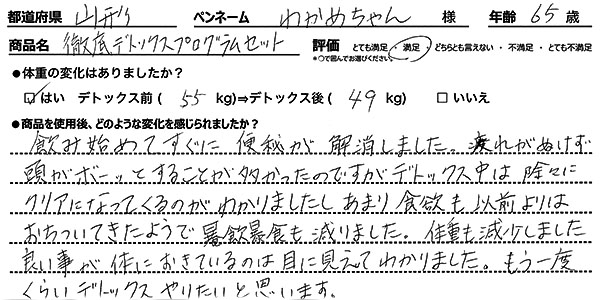 都道府県 山形 ペンネーム わかめちゃん 様 年齢 65 歳
商品名 徹底デトックスプログラムセット 評価 とても満足・満足・どちらとも言えない・不満足・とても不満足
*○で囲んでお選びください。
●体重の変化はありましたか?
☑はい デトックス前( 55 kg)⇒デトックス後( 49 kg) □いいえ
●商品を使用後、どのような変化を感じられましたか?
飲み始めてすぐに 便秘が 解消しました。疲れがぬけず
頭がボーッとすることが多かったのですがデトックス中は 除々に
クリアになってくるのがわかりましたし あまり 食欲も 以前よりは
おちついてきたようで暴飲暴食も減りました。体重も減少しました
良い事が 体におきているのは 目に見えてわかりました。もう一度
くらい デトックス やりたいと思います。